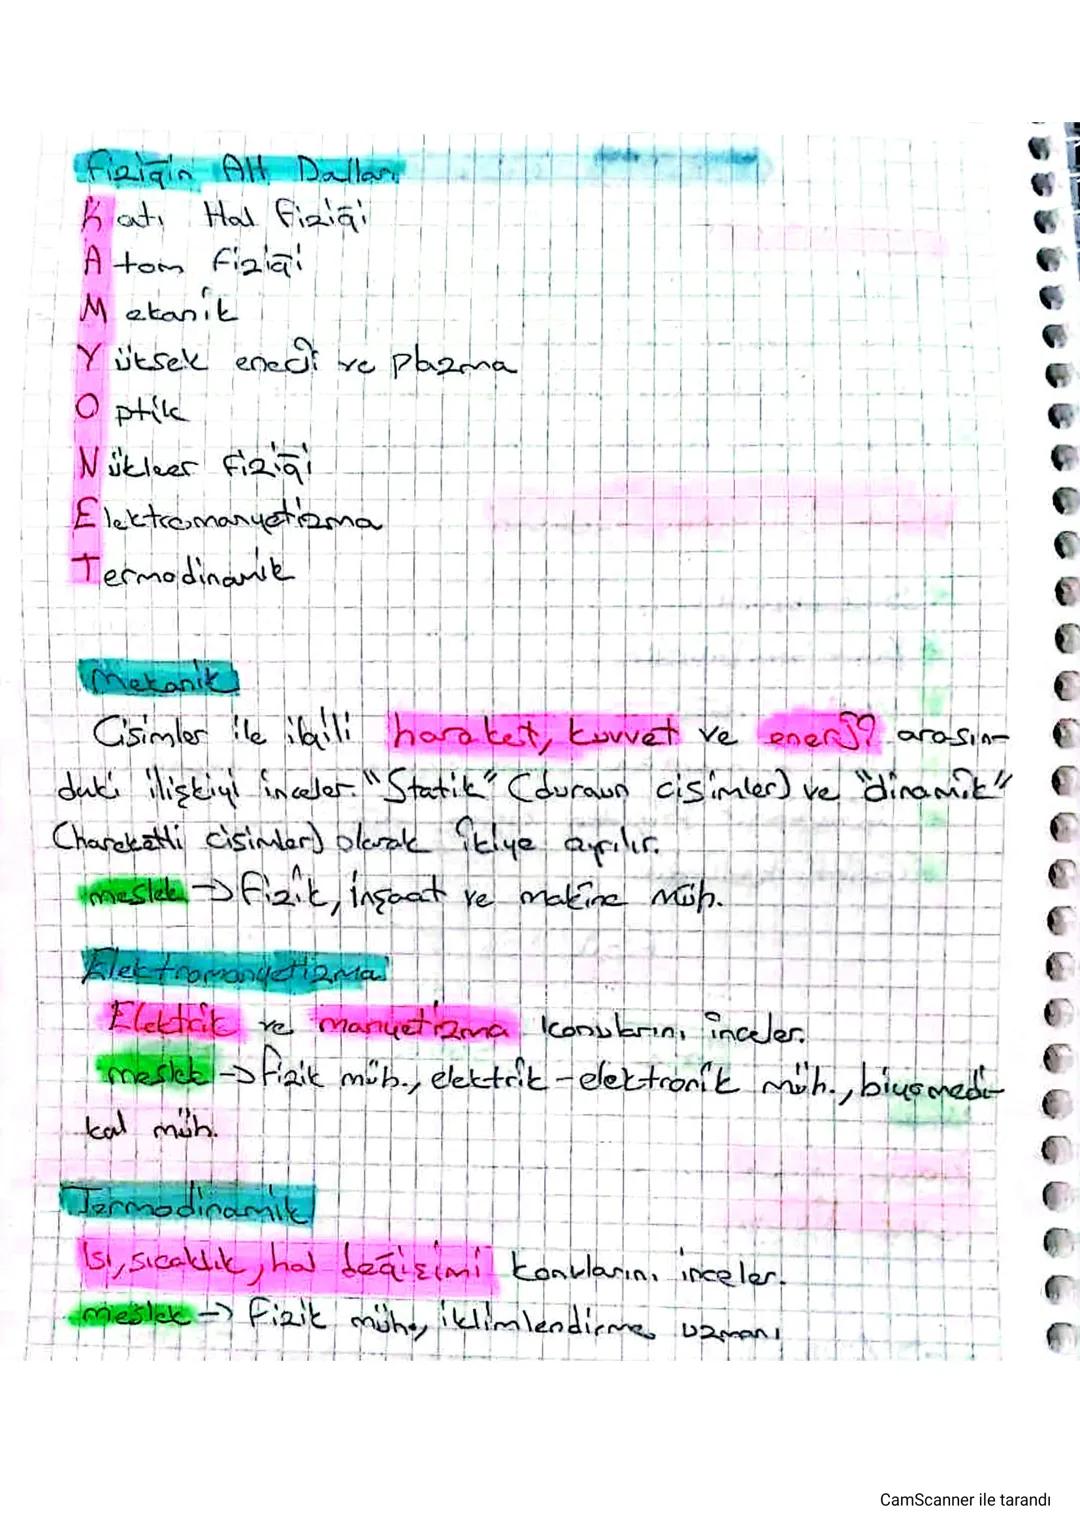 Fiziğin Alt Dalları
Katı Hal Fiziği
Atom Fiziği
Mekanik
Yüksek enerji ve Plazma
Optik
Nükleer Fiziği
Elektromanyetizma
Termodinamik
Mekanik
Cisimler ile ilgili haraket, kuvvet ve enerji arasın-
daki ilişkiyi inceler. "Statik" (duran cisimler) ve "dinamik"
(hareketli cisimler) olarak ikiye ayrılır.
meslek → Fizik, İnşaat ve makine Müh.
Elektromanyetizma
Elektrik ve manyetizma konularını inceler.
meslek → Fizik müh., elektrik-elektronik müh., biyomedi-
kal müh.
Termodinamik
Isı, sıcaklık, hal değişimi konularını inceler.
meslek → Fizik müh., iklimlendirme uzmanı
CamScanner ile tarandı